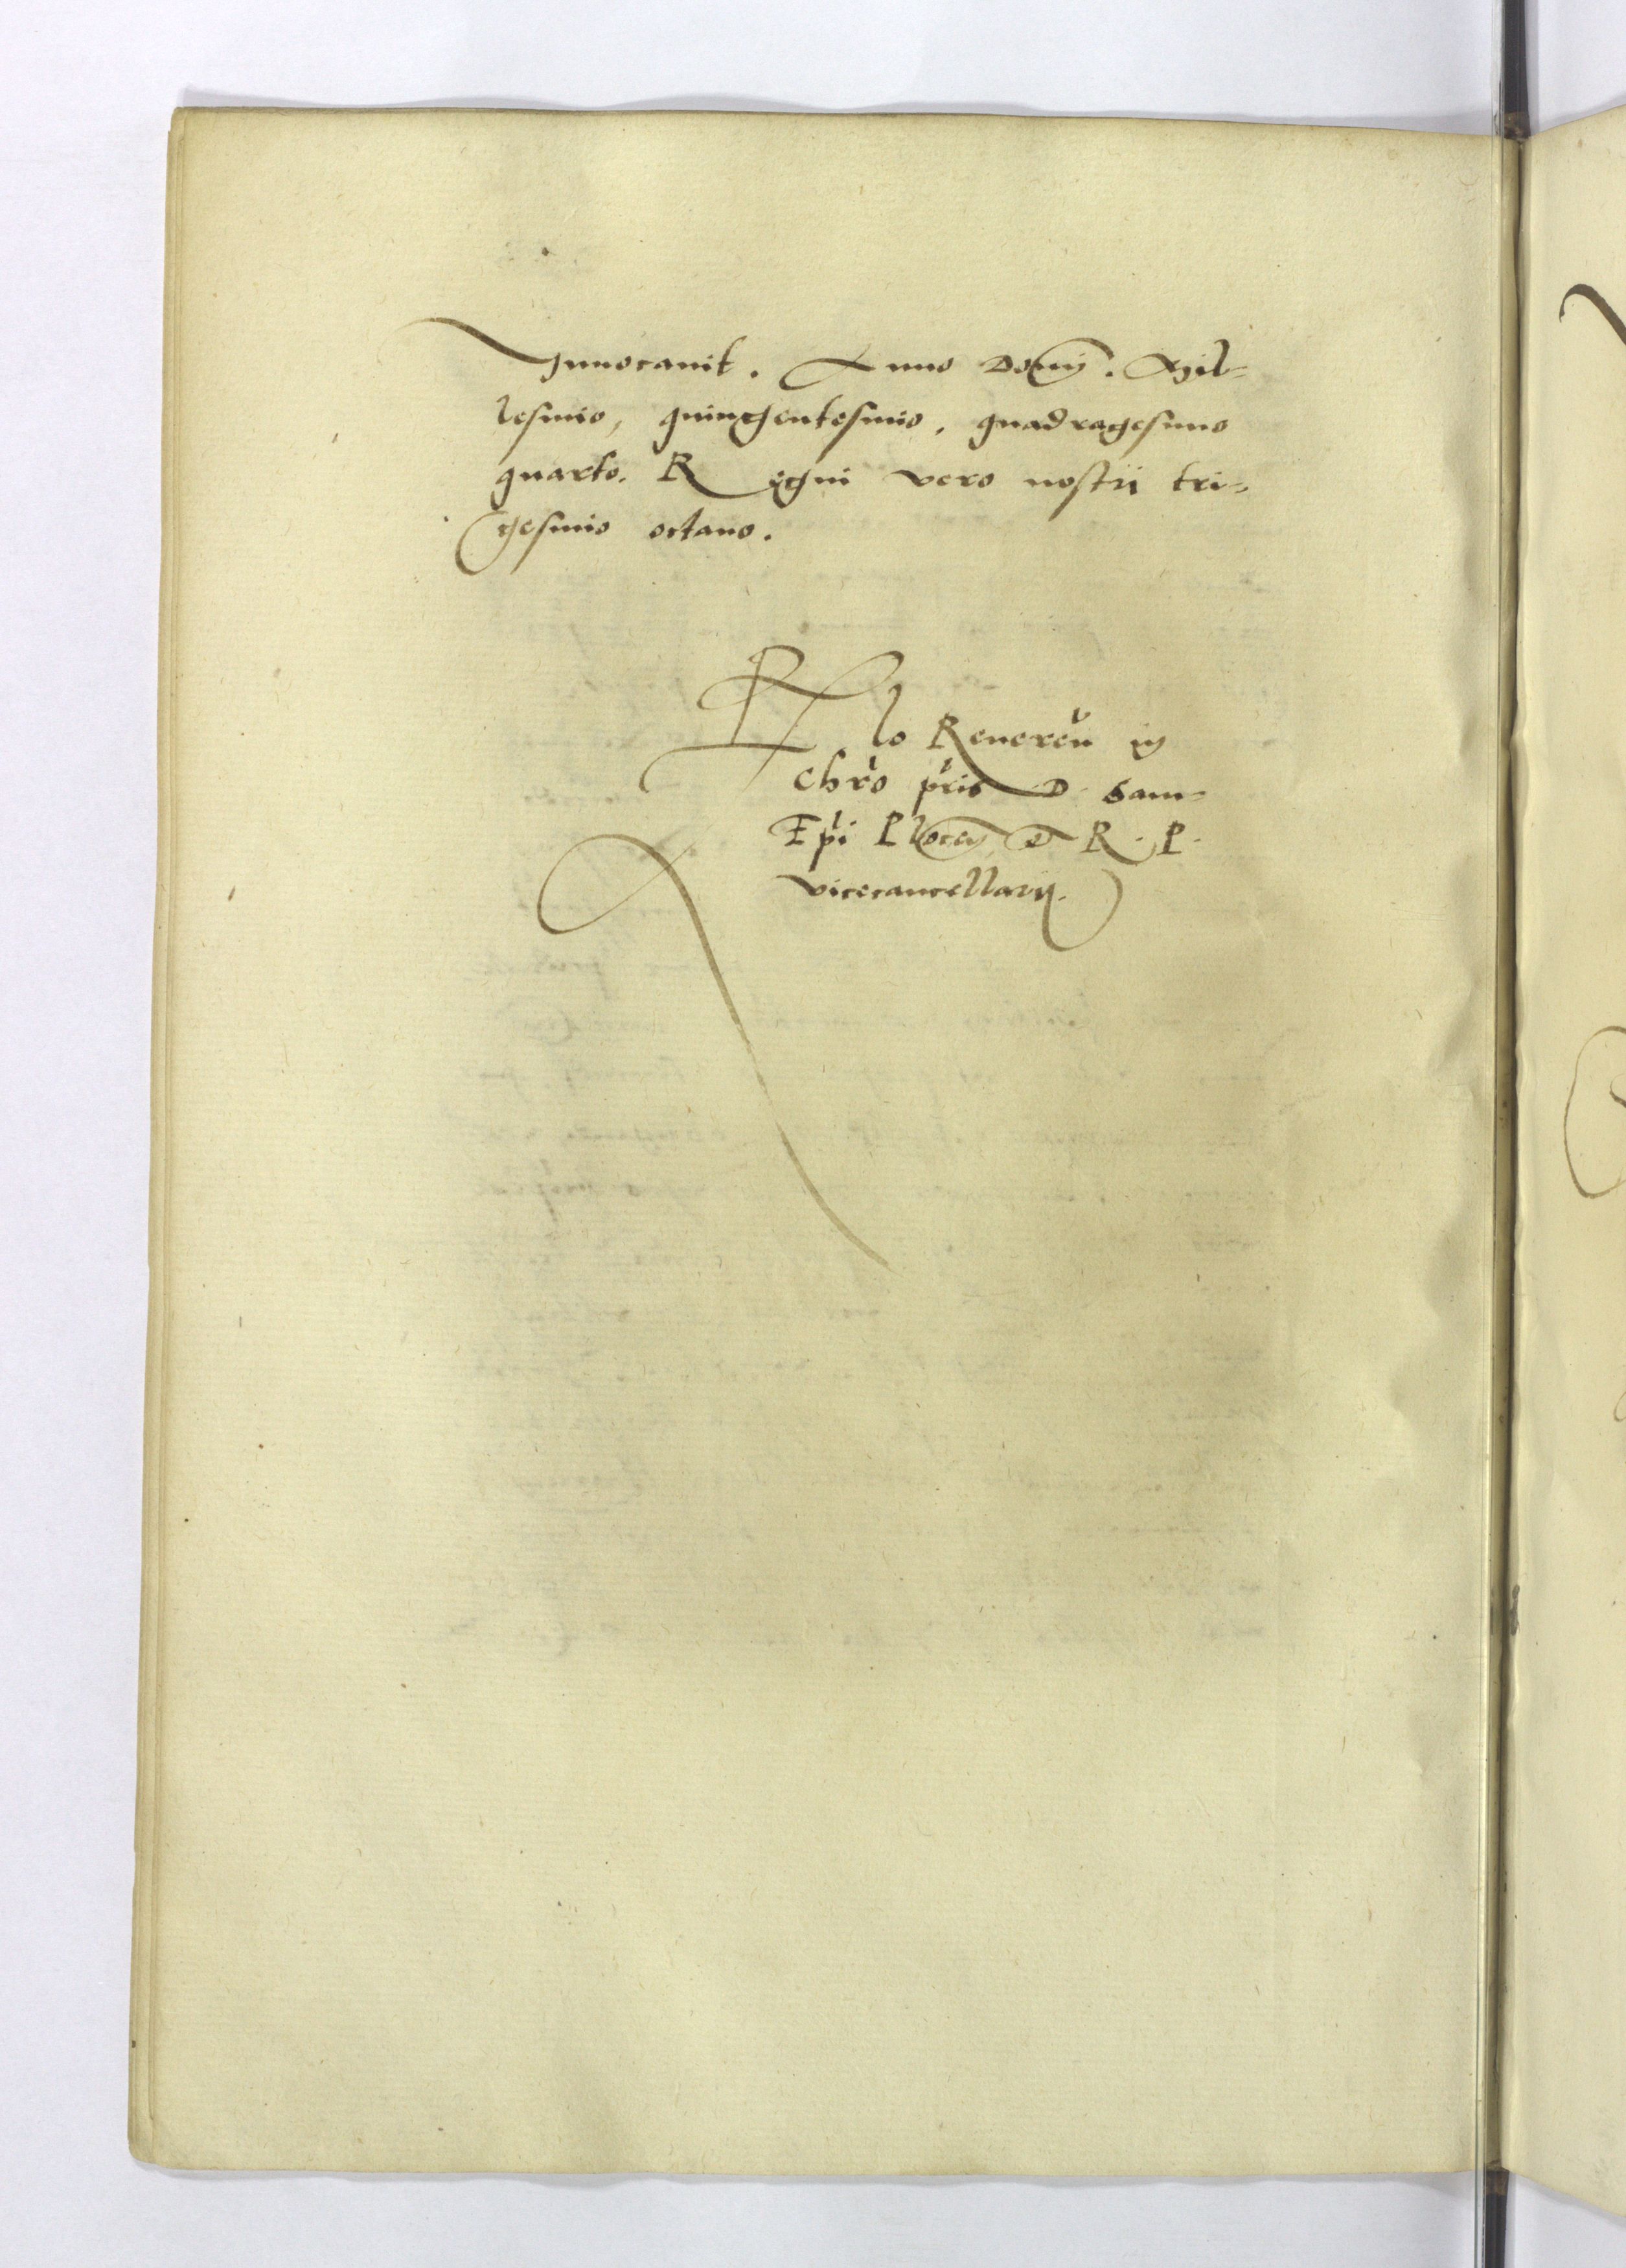 Innocavit. Anno Domij. Mil-
lesimo, quingentesimo, quadragesimo
quarto. Regni vero nostri tri-
gesimo octavo.
Rlo Reveren in
Chro pris D. Sam-
Epi Plocen et R. P.
vicecancellarij.